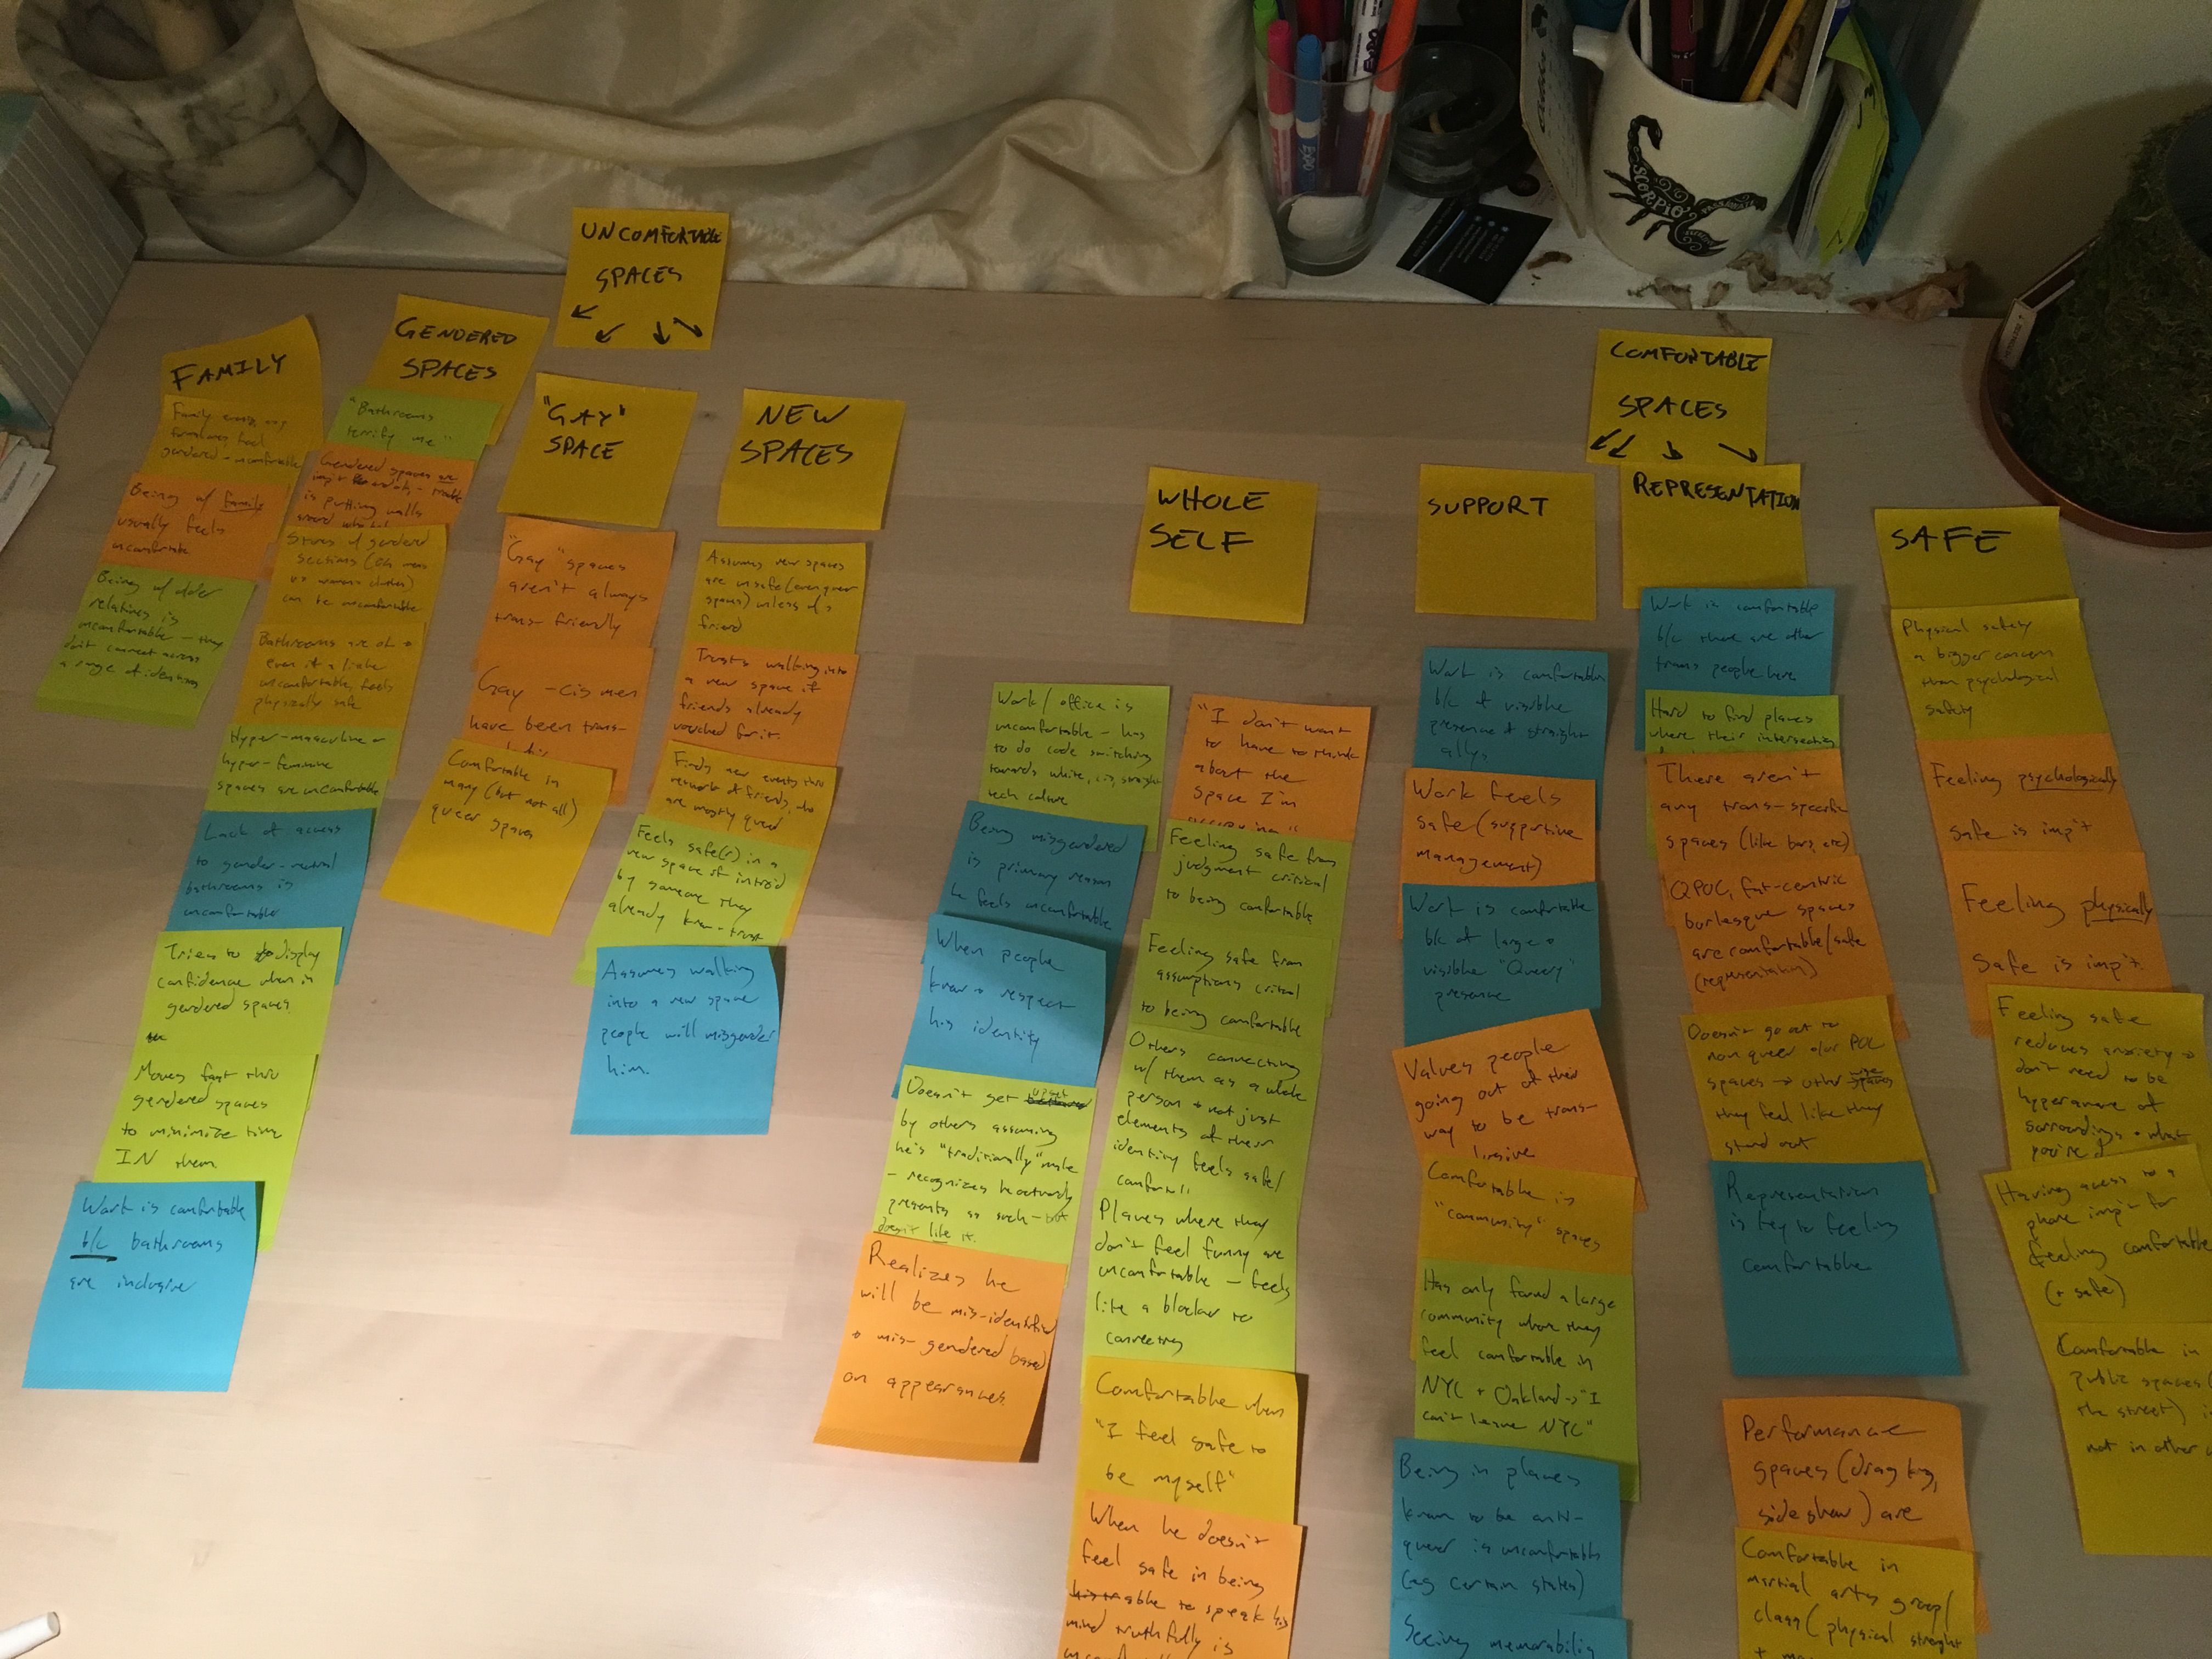 UNCOMFORTABLE
SPACES
FAMILY
being
gendered - uncomfortable
Being w/ family
usually feels
uncomfortable
Being w/ older
relatives is
uncomfortable - they
don't connect across
a range of identities
GENDERED
SPACES
"Bathrooms
terrify me"
Gendered spaces are
is putting walls
Stores w/ gendered
sections (eg mens
vs womens clothes)
can be uncomfortable
Bathrooms are ok -
even if a little
uncomfortable, feels
physically safe
Hyper-masculine or
hyper-feminine
spaces are uncomfortable
Lack of access
to gender-neutral
bathrooms is
uncomfortable
Tries to display
confidence when in
gendered spaces.
Moves fast thru
gendered spaces
to minimize time
IN them.
Work is comfortable
b/c bathrooms
are inclusive
"GAY"
SPACE
"Gay" spaces
aren't always
trans-friendly
Gay-cis men
have been trans-
Comfortable in
many (but not all)
queer spaces
NEW
SPACES
Assumes new spaces
are unsafe (even queer
spaces) unless w/ a
friend
Trusts walking into
a new space if
friends already
vouched for it.
Finds new events thru
network of friends, who
are mostly queer
Feels safe(r) in a
new space if intro'd
by someone they
already know-trust
Assumes walking
into a new space
people will misgender
him.
COMFORTABLE
SPACES
WHOLE
SELF
Work/office is
uncomfortable - has
to do code switching
towards white, cis, straight
tech culture
Being misgendered
is primary reason
he feels uncomfortable
When people
know + respect
his identity
Doesn't get upset
by others assuming
he's "traditionally" male
- recognizes he outwardly
presents as such - but
doesn't like it.
Realizes he
will be mis-identified
+ mis-gendered based
on appearances.
"I don't want
to have to think
about the
space I'm
occupying"
Feeling safe from
judgment critical
to being comfortable
Feeling safe from
assumptions critical
to being comfortable
Others connecting
w/ them as a whole
person + not just
elements of their
identity feels safe/
Places where they
don't feel funny are
uncomfortable - feels
like a blocker to
connecting
Comfortable when
"I feel safe to
be myself"
When he doesn't
feel safe in being
able to speak his
mind truthfully is
SUPPORT
Work is comfortable
b/c of visible
presence of straight
allys
Work feels
safe (supportive
management)
Work is comfortable
b/c of large +
visible "Queery"
presence
Values people
going out of their
way to be trans-
Comfortable in
"community" spaces
Has only found a large
community where they
feel comfortable in
NYC + Oakland -> "I
can't leave NYC"
Being in places
known to be anti-
queer is uncomfortable
(eg certain states)
Seeing memorabilia
REPRESENTATION
Work is comfortable
b/c there are other
trans people here
Hard to find places
where their intersecting
There aren't
any trans-specific
spaces (like bars, etc)
QPOC, fat-centric
burlesque spaces
are comfortable/safe
(representation)
Doesn't go out to
non queer +/or POC
spaces -> otherwise
they feel like they
stand out
Representation
is key to feeling
comfortable
Performance
spaces (drag king,
side show) are
Comfortable in
martial arts group/
class (physical strength
SAFE
Physical safety
a bigger concern
than psychological
safety
Feeling psychologically
safe is imp't
Feeling physically
safe is imp't
Feeling safe
reduces anxiety ->
don't need to be
hyperaware of
surroundings + what
Having access to a
phone imp't for
feeling comfortable
(+ safe)
Comfortable in
public spaces (
the street)
not in other
EXPO
EXPO
SCORPIO